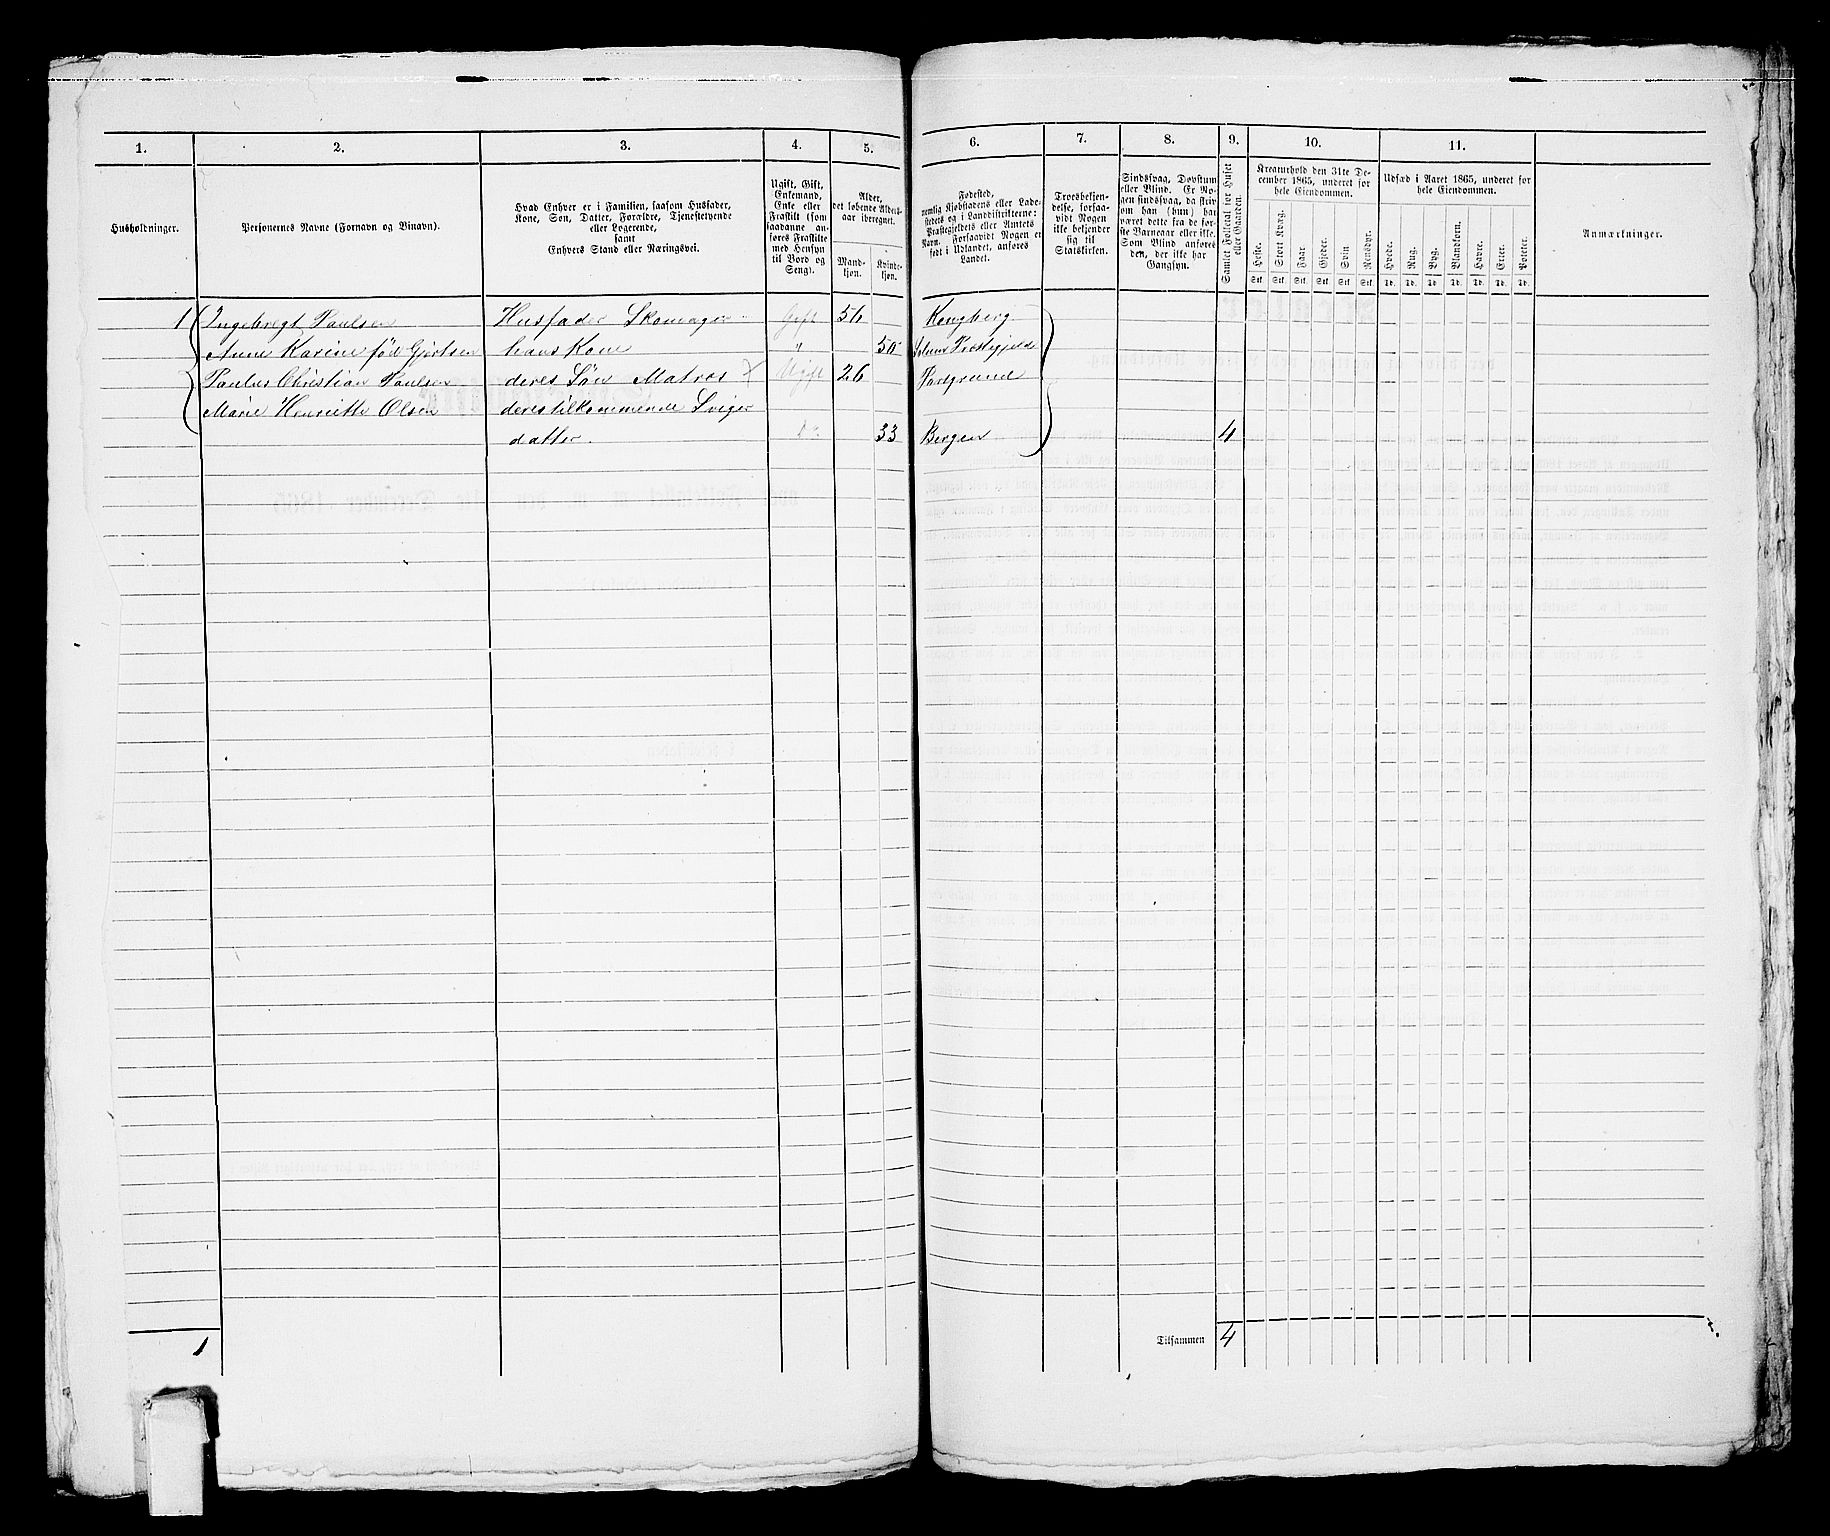 1. 2. 3. 4. 5. 6. 7. 8. 9. 10. 11.
Husholdninger.
Personernes Navne (Fornavn og Binavn).
Hvad Enhver er i Familien, saasom Husfader,
Kone, Søn, Datter, Forældre, Tjenestetyende
eller Logerende,
samt
Enhvers Stand eller Næringsvei.
Ugift, Gift,
Enkemand,
Enke eller
Fraskilt (som
saadanne an-
føres Fraskilte
med Hensyn
til Bord og
Seng).
Alder,
det løbende Alders-
aar iberegnet.
Mand-
kjøn.
Kvinde-
kjøn.
Fødested,
nemlig Kjøbstadens eller Lade-
stedets og i Landdistrikterne:
Præstegjeldets eller Amtets
Navn. Forsaavidt Nogen er
født i Udlandet, anføres
Landet.
Troesbekjen-
delse, forsaa-
vidt Nogen
ikke bekjender
sig til
Statskirken.
Sindssvag, Døvstum
eller Blind. Er No-
gen sindssvag, da skriv
om han (hun) har
været dette fra de før-
ste Barneaar eller ikke.
Som Blind anføres
den, der ikke har
Gangsyn.
Samlet Folketal for Huset
eller Gaarden.
Kreaturhold den 31te De-
cember 1865, underet for
hele Eiendommen.
Heste. Stort Kvæg. Faar. Gjeder. Svin Rensdyr.
Stk. Stk. Stk. Stk. Stk. Stk.
Udsæd i Aaret 1865, underet for
hele Eiendommen.
Hvede. Rug. Byg. Blandkorn. Havre. Erter. Poteter.
Td. Td. Td Td. Td. Td. Td.
Anmærkninger.
1 Ingebregt Paulsen Husfader Skomager Gift 56 Kongberg
Anne Karine fød Gjertsen hans Kone " 50 Præstegjeld
Paulus Christian Paulsen deres Søn Matros Ugift 26 Porsgrund
Marie Henriette Olsen deres tilkommende Sviger
datter. Do 33 Bergen 4
1 Tilsammen 4